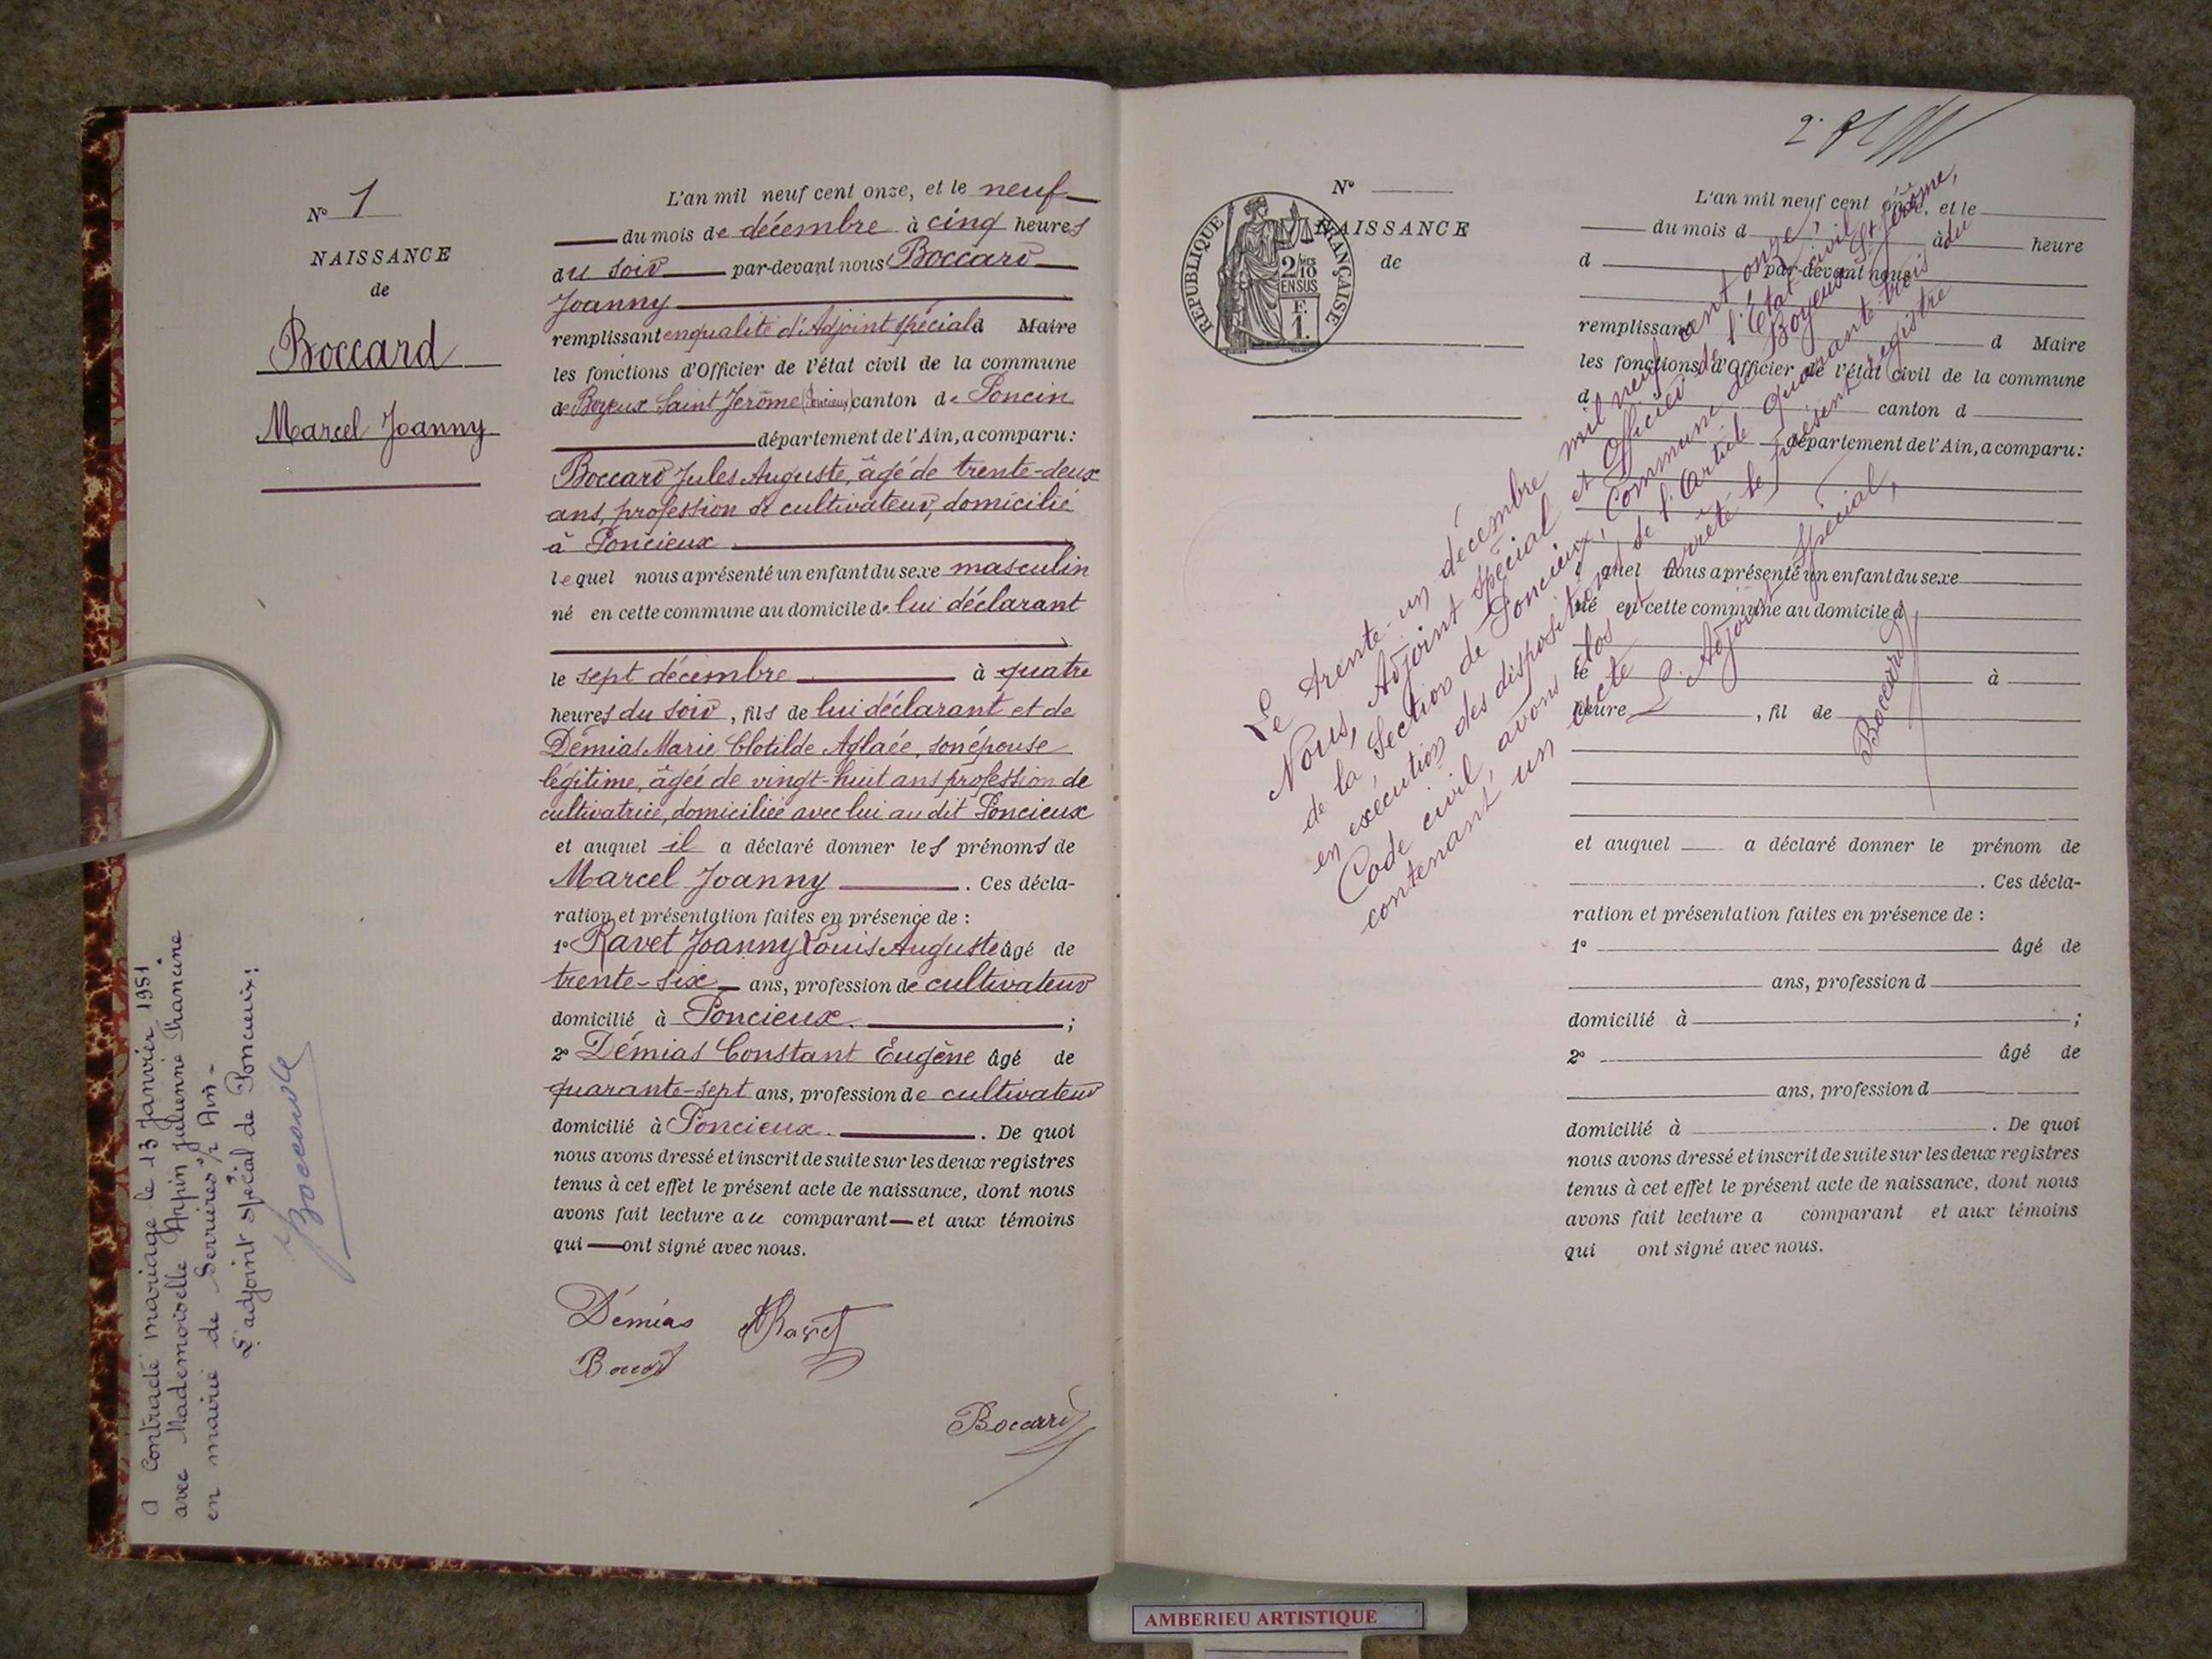 N° 1
NAISSANCE
de
Boccard
Marcel Joanny
L'an mil neuf cent onze, et le neuf
du mois de décembre à cinq heures
du soir par-devant nous Boccard
Joanny
remplissant en qualité d'Adjoint spécial d Maire
les fonctions d'Officier de l'état civil de la commune
de Boyeux Saint Jérôme (Poncieux) canton de Poncin
département de l'Ain, a comparu :
Boccard Jules Auguste, âgé de trente-deux
ans, profession de cultivateur, domicilié
à Poncieux
lequel nous a présenté un enfant du sexe masculin
né en cette commune au domicile de lui déclarant
le sept décembre à quatre
heures du soir, fils de lui déclarant et de
Démias Marie Clotilde Aglaée, son épouse
légitime, âgée de vingt-huit ans profession de
cultivatrice, domiciliée avec lui au dit Poncieux
et auquel il a déclaré donner les prénoms de
Marcel Joanny . Ces décla-
ration et présentation faites en présence de :
1° Ravet Joanny Louis Auguste âgé de
trente-six ans, profession de cultivateur
domicilié à Poncieux. ;
2° Démias Constant Eugène âgé de
quarante-sept ans, profession de cultivateur
domicilié à Poncieux. . De quoi
nous avons dressé et inscrit de suite sur les deux registres
tenus à cet effet le présent acte de naissance, dont nous
avons fait lecture au comparant et aux témoins
qui ont signé avec nous.
Démias Ravet
Boccard
Boccard
A contracté mariage le 13 Janvier 1951
avec Mademoiselle Arpin Julienne Francine
en mairie de Serrières s/r Ain -
L'adjoint spécial de Poncieux:
2.
N°
NAISSANCE
de
RÉPUBLIQUE FRANÇAISE
2/10
EN SUS
F.
1.
L'an mil neuf cent onze, et le
du mois d à heure
d par-devant nous
remplissant d Maire
les fonctions d'Officier de l'état civil de la commune
d canton d
département de l'Ain, a comparu :
quel nous a présenté un enfant du sexe
né en cette commune au domicile d
le à
heure , fil de
et auquel a déclaré donner le prénom de
. Ces décla-
ration et présentation faites en présence de :
1° âgé de
ans, profession d
domicilié à ;
2° âgé de
ans, profession d
domicilié à . De quoi
nous avons dressé et inscrit de suite sur les deux registres
tenus à cet effet le présent acte de naissance, dont nous
avons fait lecture a comparant et aux témoins
qui ont signé avec nous.
Le trente-un décembre mil neuf cent onze,
Nous, Adjoint spécial et Officier de l'État civil
de la Section de Poncieux, Commune de Boyeux St Jérôme,
en exécution des dispositions de l'Article quarante trois du
Code civil, avons clos et arrêté le présent registre
contenant un acte
L'Adjoint spécial,
Boccard
AMBERIEU ARTISTIQUE